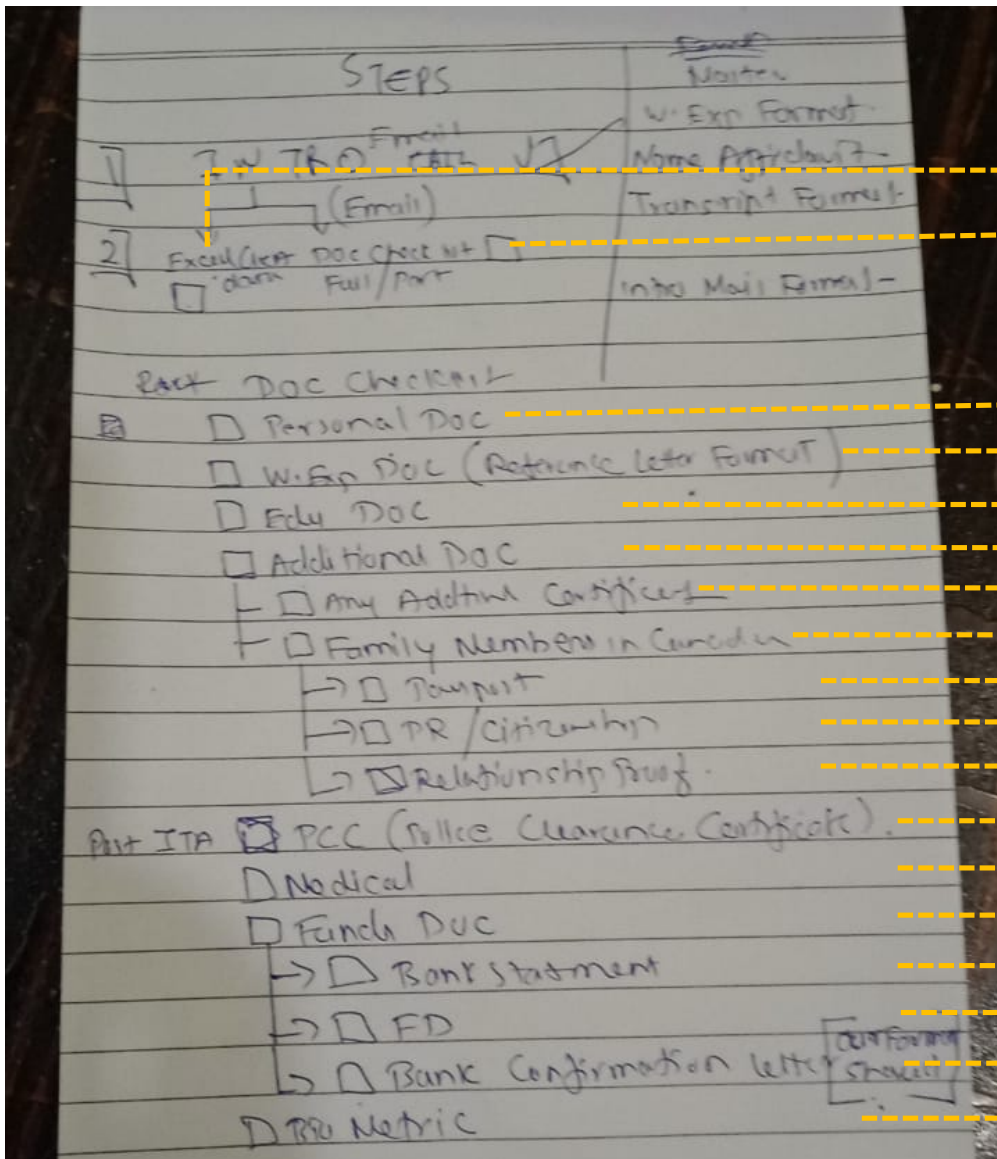 STEPS
Email
1] INTRO ✓]
(Email)
2] Excel Client Doc Check list
data Full/Part
W. Exp Format
Name
Transcript Format -
Intro Mail Format -
Doc Checklist
Personal Doc
W. Exp Doc (Reference Letter Format)
Edu Doc
Additional Doc
Any Certificate
Family Members in Canada
PR/Citizenship
Relationship Proof.
Post ITA PCC (Police Clearance Certificate).
Medical
Funds Doc
Bank Statment
FD
Bank Confirmation letter
Format
Bio Metric